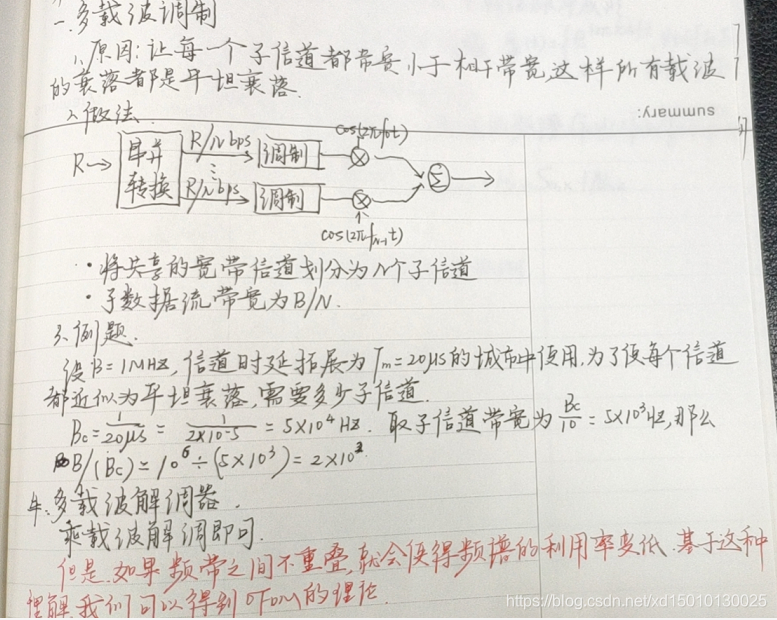 一.多载波调制
1.原因:让每一个子信道都带宽小于相干带宽,这样所有载波
的衰落都是平坦衰落.
2.做法.
summary:
cos(2πf0t)
R→ 串并转换 R/N bps 调制 ⊗ Σ
R/N bps 调制 ⊗
cos(2πfN-1t)
·将共享的宽带信道划分为N个子信道
·子数据流带宽为B/N.
3.例题.
设B=1MHz,信道时延拓展为Tm=20μs的城市中使用,为了使每个信道
都近似为平坦衰落,需要多少子信道.
Bc=1/20μs=1/2×10-5=5×10⁴Hz. 取子信道带宽为Bc/10=5×10³Hz,那么
B/(Bc)=10⁶÷(5×10³)=2×10²
4.多载波解调器.
乘载波解调即可.
但是.如果频带之间不重叠,就会使得频谱的利用率变低.基于这种
理解,我们可以得到OFDM的理论.
https://blog.csdn.net/xd15010130025